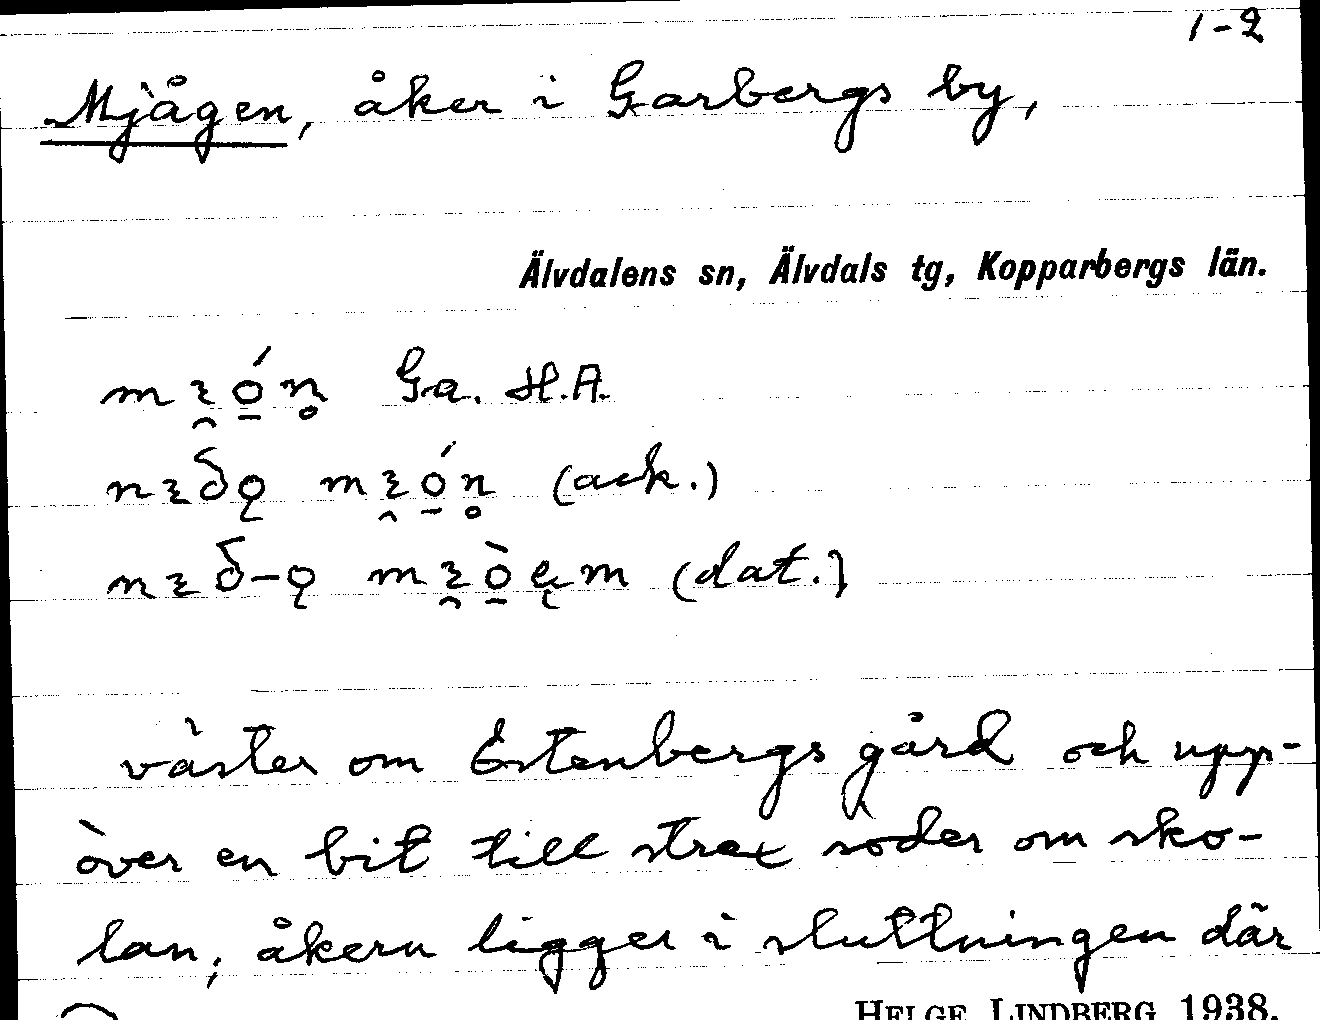 1-2
Mjågen, åker i Garbergs by,
Älvdalens sn, Älvdals tg, Kopparbergs län.
Ga. H.A.
(ack.)
(dat.)
väster om Estenbergs gård och upp-
över en bit till strax söder om sko-
lan; åkern ligger i sluttningen där
HELGE LINDBERG 1938.